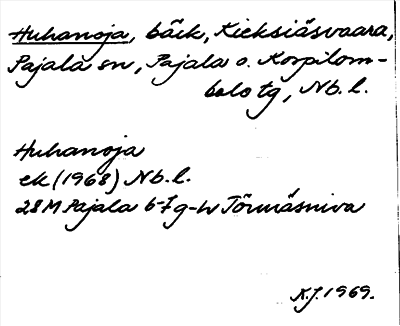 Huhanoja, bäck, Kieksiäsvaara,
Pajala sn, Pajala o. Korpilom-
bolo tg, Nb. l.
Huhanoja
ek (1968) Nb. l.
28M Pajala 6-7 g-h Törmäsniva
K.J. 1969.